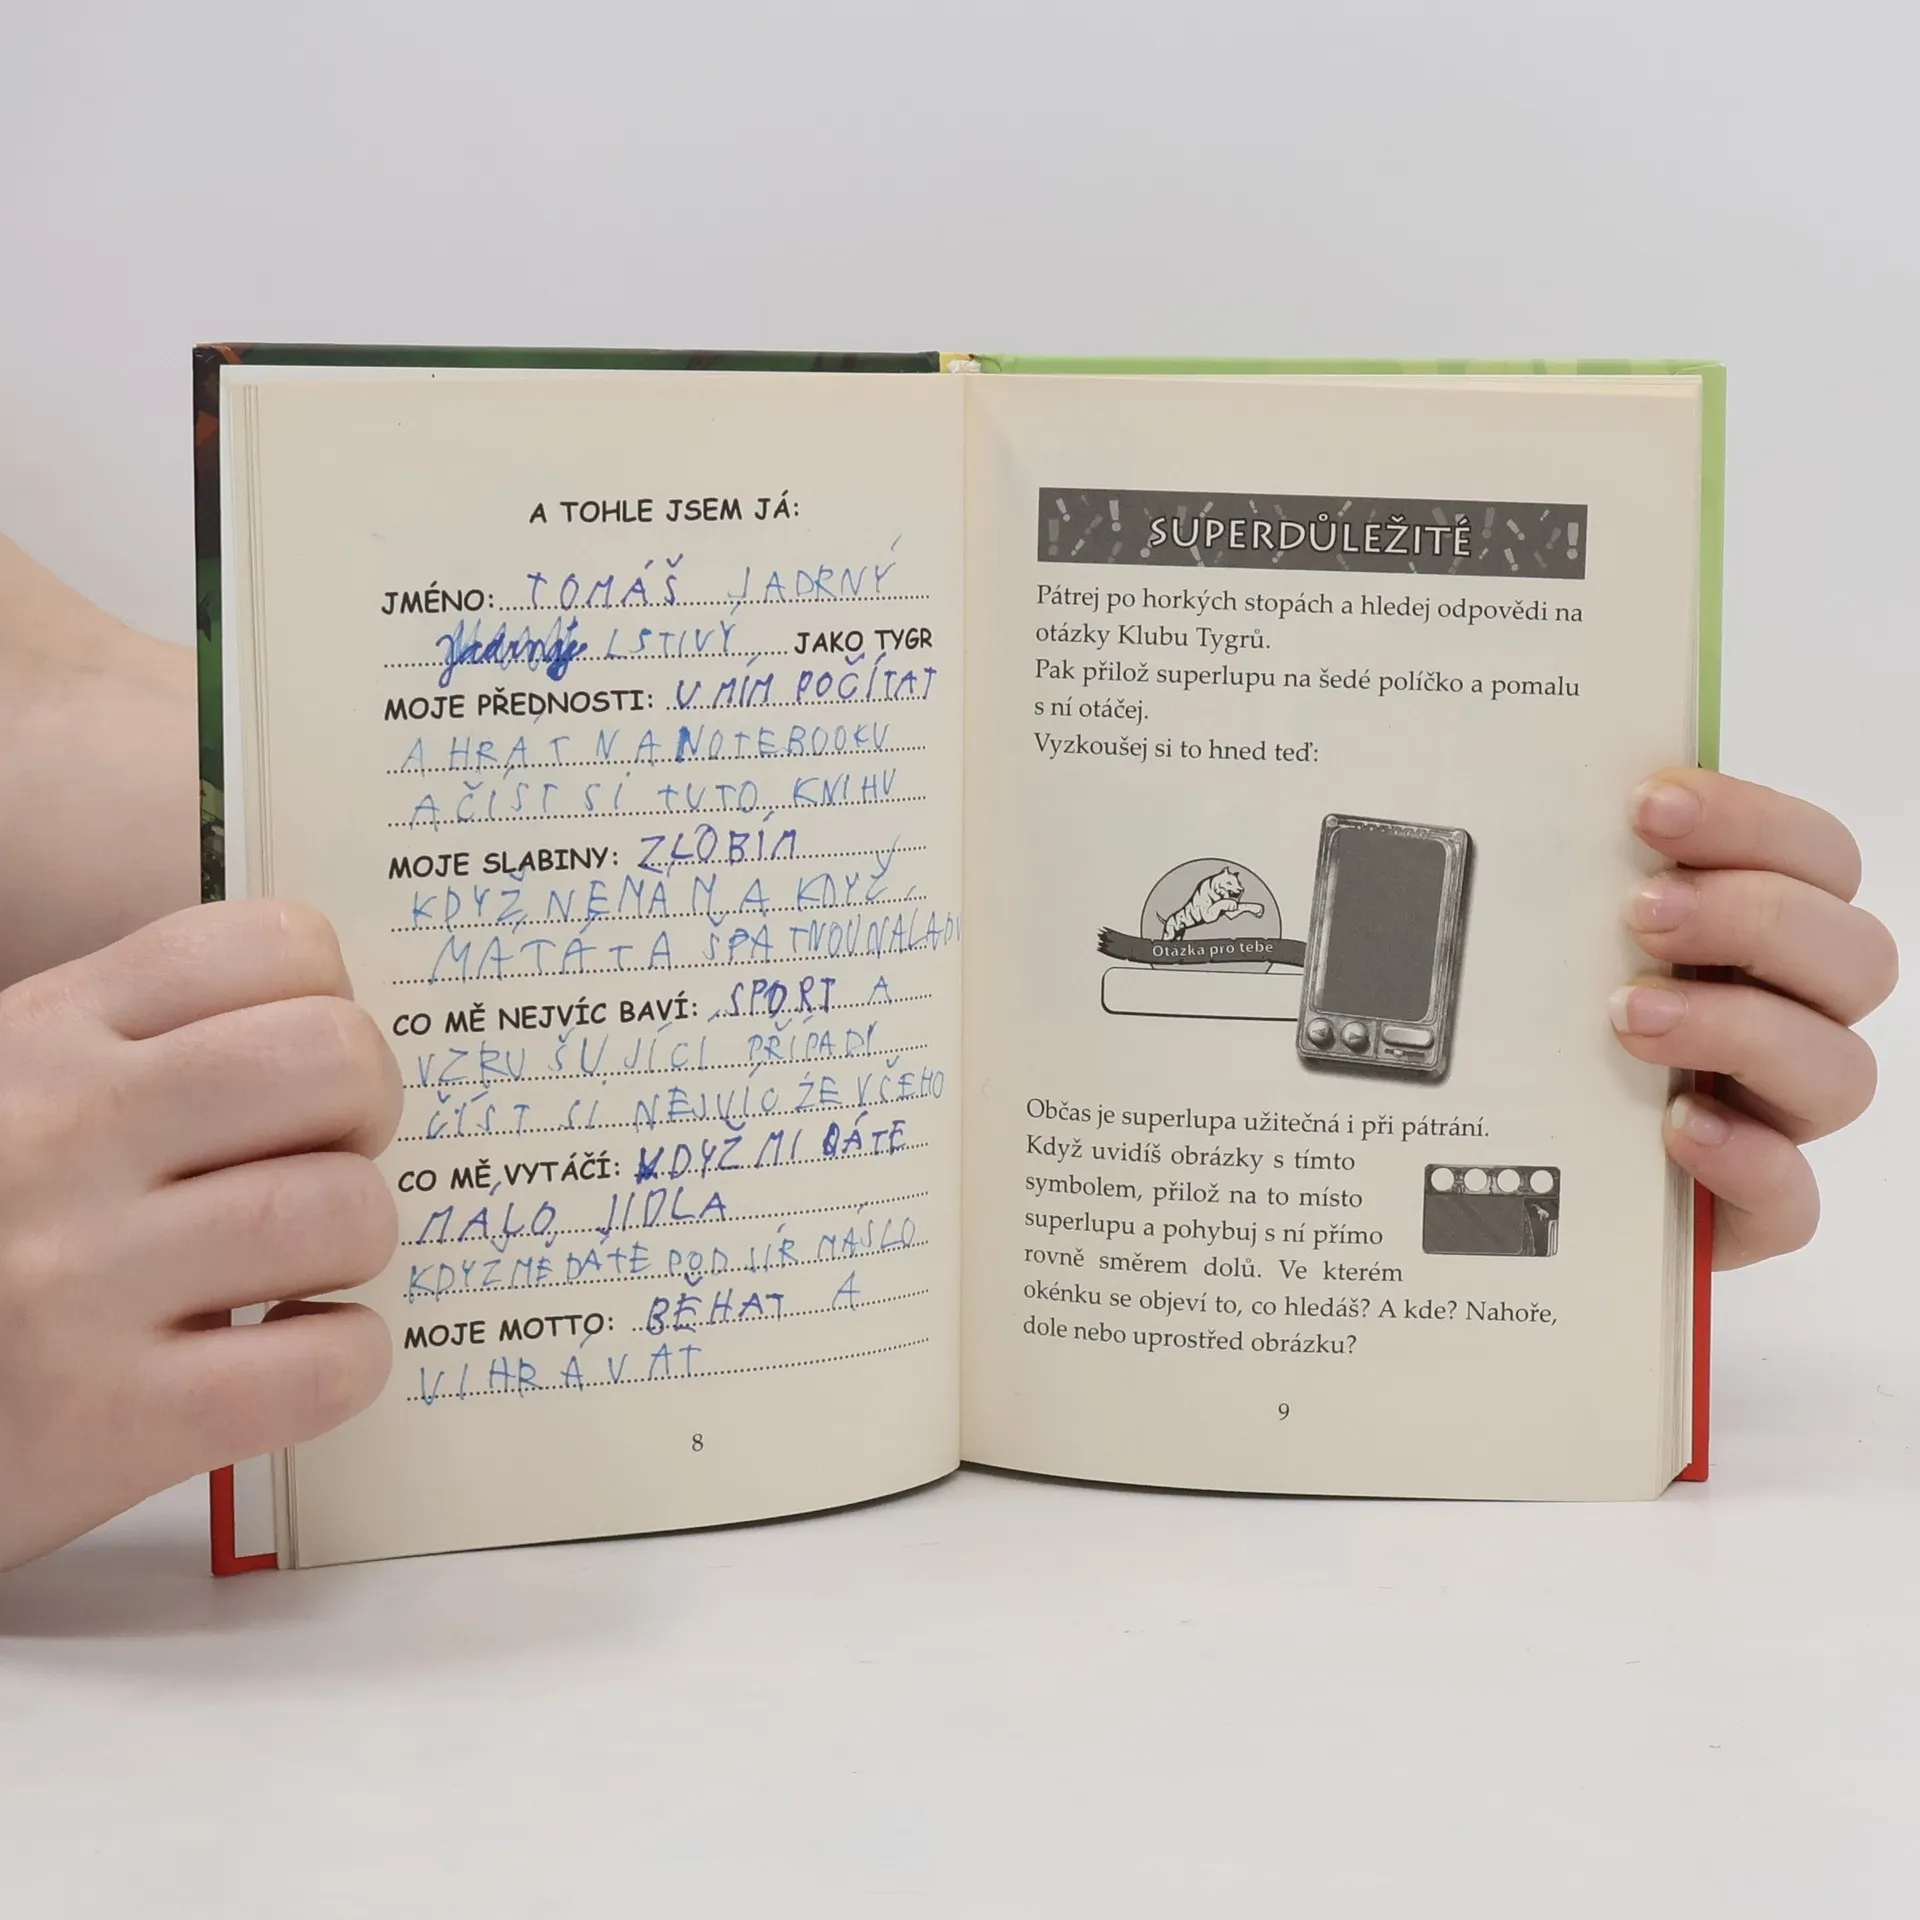 A TOHLE JSEM JÁ:
JMÉNO: TOMÁŠ JADRNÝ
LSTIVÝ JAKO TYGR
MOJE PŘEDNOSTI: UMÍM POČÍTAT
A HRÁT NA NOTEBOOKU
A ČÍST SI TUTO KNIHU
MOJE SLABINY: ZLOBÍM
KDYŽ NEMÁM A KDYŽ
MÁ TÁTA ŠPATNOU NÁLADU
CO MĚ NEJVÍC BAVÍ: SPORT A
VZRUŠUJÍCÍ PŘÍPADY
ČÍST SI NEJVÍC ŽE VŠEHO
CO MĚ VYTÁČÍ: KDYŽ MI DÁTE
MÁLO JÍDLA
KDYŽ MĚ DÁTE POD SÍR MÁSLO
MOJE MOTTO: BĚHAT A
VIHRÁVAT
8
SUPERDŮLEŽITÉ
Pátrej po horkých stopách a hledej odpovědi na
otázky Klubu Tygrů.
Pak přilož superlupu na šedé políčko a pomalu
s ní otáčej.
Vyzkoušej si to hned teď:
Otázka pro tebe
Občas je superlupa užitečná i při pátrání.
Když uvidíš obrázky s tímto
symbolem, přilož na to místo
superlupu a pohybuj s ní přímo
rovně směrem dolů. Ve kterém
okénku se objeví to, co hledáš? A kde? Nahoře,
dole nebo uprostřed obrázku?
9